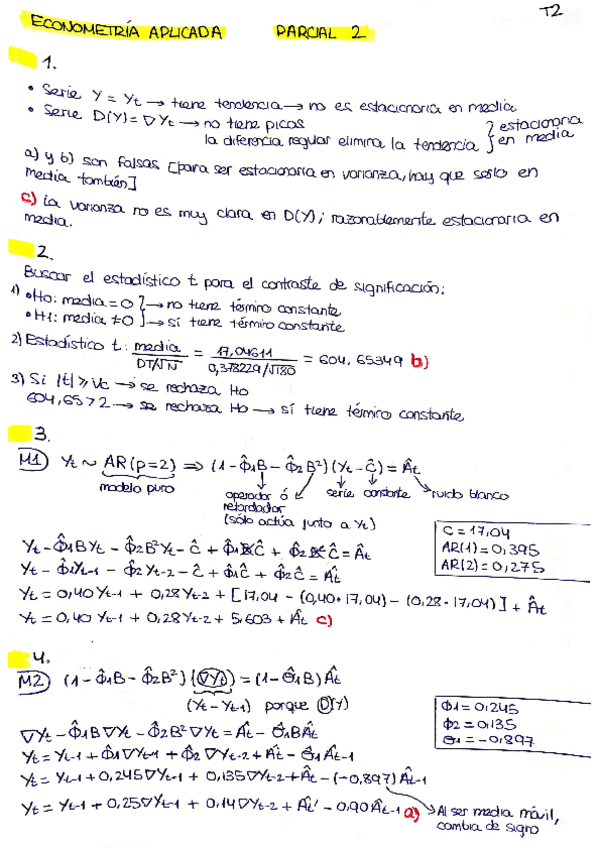 T2
ECONOMETRÍA APLICADA PARCIAL 2
1.
• Serie Y = Yt → tiene tendencia → no es estacionaria en media
• Serie D(Y) = ∇Yt → no tiene picos
la diferencia regular elimina la tendencia } estacionaria en media
a) y b) son falsas [para ser estacionaria en varianza, hay que serlo en
media también]
c) La varianza no es muy clara en D(Y); razonablemente estacionaria en
media.
2.
Buscar el estadístico t para el contraste de significación:
1) • H0: media = 0 } → no tiene término constante
• H1: media ≠ 0 } → sí tiene término constante
2) Estadístico t: media / (DT/√N) = 17,04611 / (0,378229/√180) = 604,65349 b)
3) Si |t| ≥ Vc → se rechaza H0
604,65 > 2 → se rechaza H0 → sí tiene término constante
3.
M1) Yt ~ AR(p=2) ⇒ (1 - Φ̂1B - Φ̂2B²)(Yt - Ĉ) = Ât
modelo puro
operador ó retardador (sólo actúa junto a Yt)
serie constante ruido blanco
C = 17,04
AR(1) = 0,395
AR(2) = 0,275
Yt - Φ̂1BYt - Φ̂2B²Yt - Ĉ + Φ̂1BĈ + Φ̂2B²Ĉ = Ât
Yt - Φ̂1Yt-1 - Φ̂2Yt-2 - Ĉ + Φ̂1Ĉ + Φ̂2Ĉ = Ât
Yt = 0,40Yt-1 + 0,28Yt-2 + [17,04 - (0,40·17,04) - (0,28·17,04)] + Ât
Yt = 0,40Yt-1 + 0,28Yt-2 + 5,603 + Ât c)
4.
M2) (1 - Φ̂1B - Φ̂2B²)(∇Yt) = (1 - Θ̂1B)Ât
(Yt - Yt-1) porque D(Y)
Φ1 = 0,245
Φ2 = 0,135
Θ1 = -0,897
∇Yt - Φ̂1B∇Yt - Φ̂2B²∇Yt = Ât - Θ̂1BÂt
Yt = Yt-1 + Φ̂1∇Yt-1 + Φ̂2∇Yt-2 + Ât - Θ̂1Ât-1
Yt = Yt-1 + 0,245∇Yt-1 + 0,135∇Yt-2 + Ât - (-0,897)Ât-1
Yt = Yt-1 + 0,25∇Yt-1 + 0,14∇Yt-2 + Ât' - 0,90Ât-1 a)
Al ser media móvil,
cambia de signo